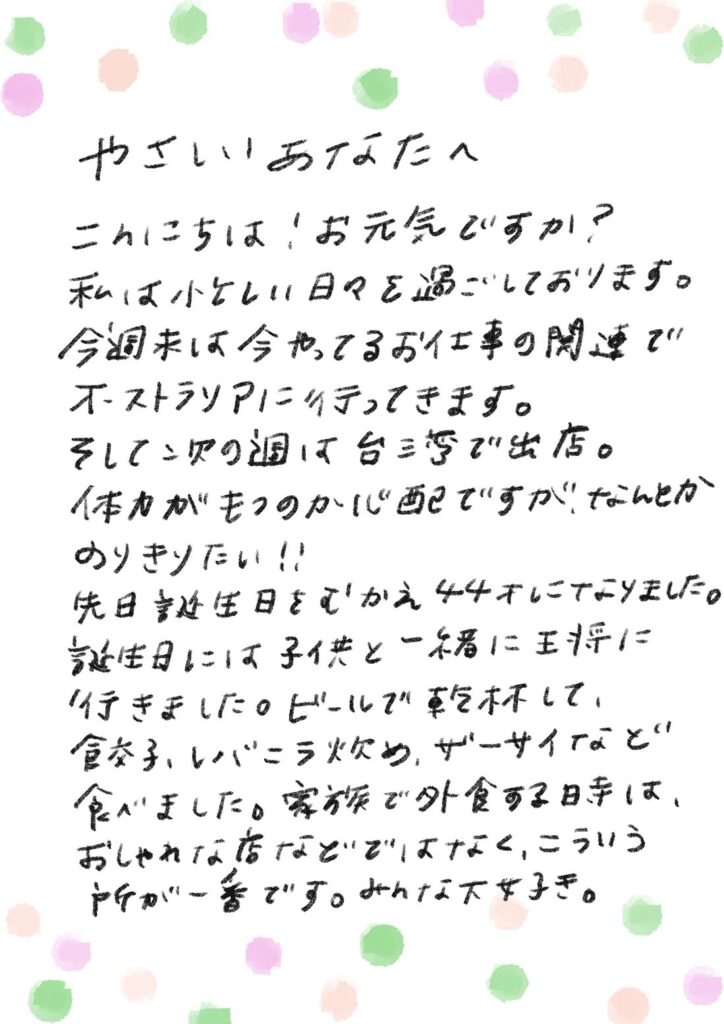 やさしいあなたへ
こんにちは！お元気ですか？
私は忙しい日々を過ごしております。
今週末は今やってるお仕事の関連で
オーストラリアに行ってきます。
そして次の週は台湾で出店。
体力がもつのか心配ですが、なんとか
のりきりたい！！
先日誕生日をむかえ44才になりました。
誕生日には子供と一緒に王将に
行きました。ビールで乾杯して、
餃子、レバニラ炒め、ザーサイなど
食べました。家族で外食する時は、
おしゃれな店などではなく、こういう
所が一番です。みんな大好き。